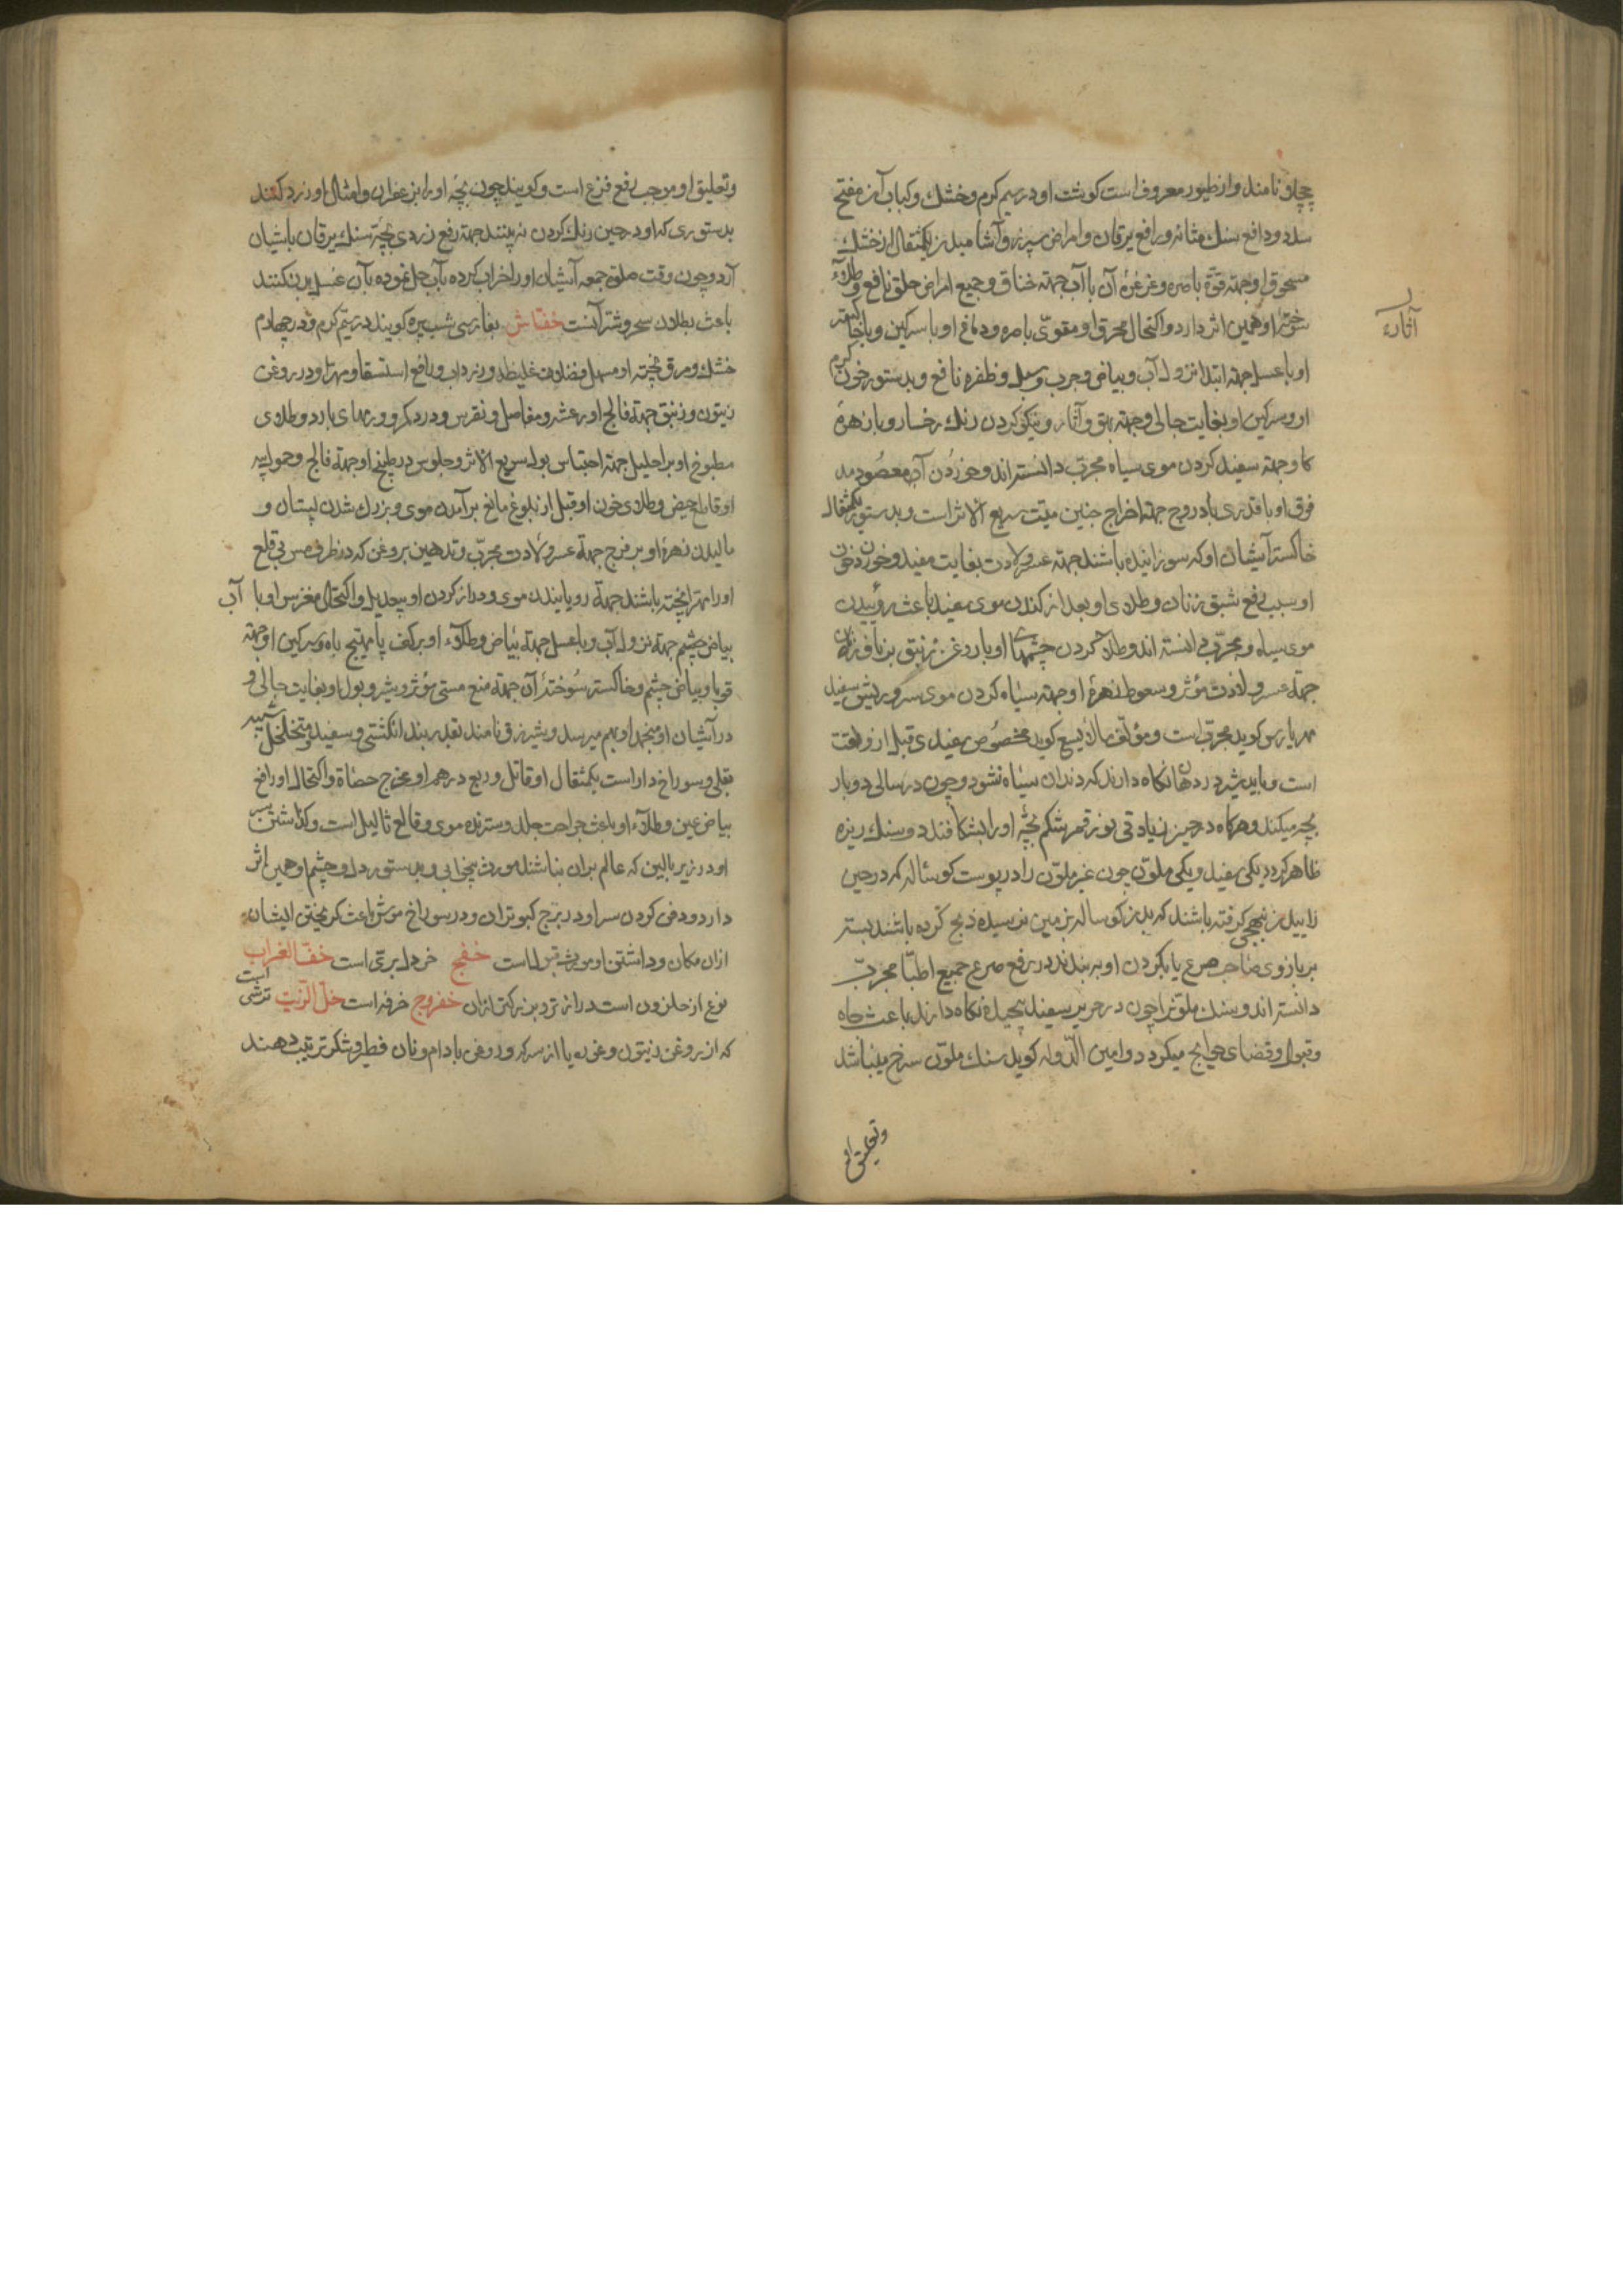 چچلو نامند و از طیور معروف است کوشت او در سیم کرم و خشک و کباب آن مفتح
سدد و دافع سنک مثانه و رافع یرقان و امراض سپرز و آشامیدن یکمثقال از خشک
مسحوق او جهته قوّة باصره و غرغرهٔ آن با آب جهته خناق و جمیع امراض حلق نافع و طلاء
سوختهٔ او همین اثر دارد و اکتحال محرق او مقوّی باصره و دماغ او با سرکین و با خاکستر
او با عسل جهته ابتدا نزول آب و بیاض و جرب و سبل و ظفره نافع و بدستور خون کرم
او و سرکین او بغایت جالی و جهته بهق و آثار و نیکو کردن رنک رخسار و با زهرهٔ
آثار
کاو جهته سفید کردن موی سیاه مجرّب دانسته اند و خوردن آب معصود مد
فوق او با قدری بادروج جهته اخراج جنین میّت سریع الاثر است و بدستور یکمثقال
خاکستر آشیان او که سوزانیده باشند جهته عسر ولادت بغایت مفید و خوردن خون
او سبب رفع شبق زنان و طلای او بعد از کندن موی سفید باعث روئیدن
موی سیاه و مجرّب دانسته اند و طلا کردن چشمهای او با روغن زنبق بر ناف زنان
جهته عسر ولادت مؤثر و سعوط زهرهٔ او جهته سیاه کردن موی سر و ریش سفید
مهریارس کوید مجرّبست و مؤلف مالایسع کوید مخصوص سفیدی قبل از وقت
است و باید شیر در دهان نکاه دارند که دندان سیاه نشود و چون در سالی دو بار
بچه میکند و هرکاه در حین زیادتی نور قمر شکم بچهٔ او را بشکافند دو سنک ریزه
ظاهر کردد یکی سفید و یکی ملوّن چون غیر ملوّن را در پوست کوساله که در حین
زاییدن نبهجی کرفته باشند که بدن کوساله بزمین نرسیده ذبح کرده باشند بسته
بر بازوی صاحب صرع یا بکردن او ببندند در رفع صرع جمیع اطبّا مجرّب
دانسته اند و سنک ملوّنرا چون در حریر سفید پیچیده نکاه دارند باعث جاه
و قبول و قضای حوایج میکردد و امین الدّوله کوید سنک ملوّن سرخ میباشد
و تعلیق او
و تعلیق او موجب رفع فزع است و کویند چون بچهٔ او را بزعفران و امثال او زرد کنند
بدستوری که او در حین رنک کردن نه بیند جهته رفع زردی بچه سنک یرقان باشیان
آرد و چون وقت صلوة جمعه آشیان او را خراب کرده بآب حل نموده بآن غسل بدن کنند
باعث بطلان سحر و شر آنست خفّاش بفارسی شب پره کویند در سیّم کرم و در چهارم
خشک و مرق پختهٔ او مسهل فضلات غلیظه و زرداب و رافع استسقا و مهرّا و در روغن
زیتون و زنبق جهته فالج و رعشه و مفاصل و نقرس و درد کمر و ورمهای بارد و طلای
مطبوخ او بر احلیل جهته احتباس بول سریع الاثر و جلوس در طبیخ او جهته فالج و حمول به
او قاطع حیض و طلای خون او قبل از بلوغ مانع برآمدن موی و بزرک شدن پستان و
مالیدن زهرهٔ او بر فرج جهته عسر ولادت مجرّب و تدهین بروغن که در ظرف مس بی قلع
او را مهرّا پخته باشند جهته رویانیدن موی و دراز کردن او بیعدیل و اکتحال مغز سر او با آب
بیاض چشم جهته نزول آب و با عسل جهته بیاض و طلاء او بر کف پا مهیّج باه و سرکین او جهته
قوبا و بیاض چشم و خاکستر سوختهٔ آن جهته منع مستی مؤثر و شیر و بول او بغایت جالی و
در آشیان او منجمد او بهم میرسد و شیرزق نامند بقدر بند انکشتی و سفید و متخلخل شبیه
بقلی و سوراخ دار است یکمثقال او قاتل و ربع درهم او مخرج حصاة و اکتحال او رافع
بیاض عین و طلاء او باعث جراحت جلد و سترنده موی و قالع ثالیل است و کذاشتن سر
او در زیر بالین که عالم بران نباشد مورث بیخوابی و بدستور دل و چشم او همین اثر
دارد و دفن کردن سر او در برج کبوتران و در سوراخ موش باعث کریختن ایشان
ازان مکان و داشتن او مورث قبول است خفج خردل برّی است خفّ الغراب
نوع از حلزون است درازتر و بزرکتر ازان خفروج خرفه است خلّ الزّیت ترشی است
که از روغن زیتون و غوره یا از سرکه و روغن بادام و نان فطیر و شکر ترتیب دهند